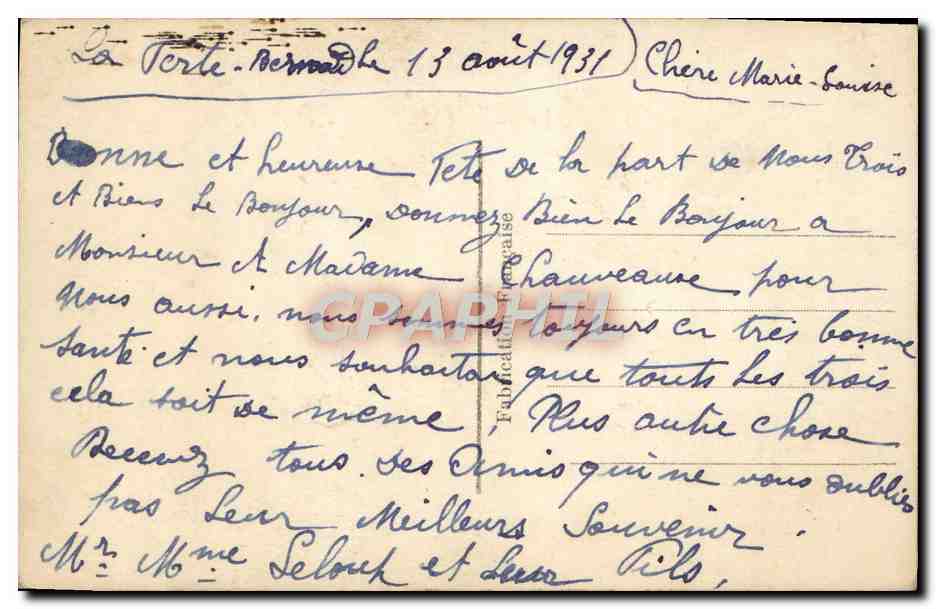 La Ferte-Bernardhe 13 août 1931
Chère Marie-Louise
Bonne et heureuse Fete de la part de Nous Trois
et Biens le Bonjour, donnez Bien le Bonjour a
Monsieur et Madame Chauveause pour
Nous aussi. nous sommes toujours en très bonne
santé et nous souhaiton que touts les trois
cela soit de même, Plus autre chose
Recevez tous. Des Amis qui ne vous oublies
pas Leur Meilleurs Souvenir.
Mr. Mme Selouh et Leur Fils,
Fabrication Française
CPAPHIL